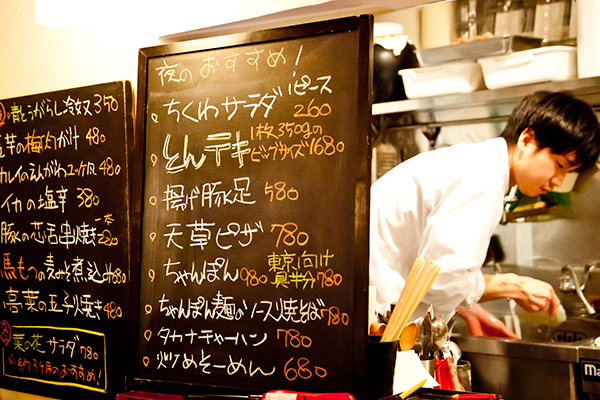 青とうがらし冷奴 350
芋の梅肉がけ 480
カレイのえんがわユッケ風 480
イカの塩辛 380
豚の芯活串焼き 一本 220
馬もつの麦みそ煮込み 680
高菜の玉子焼き 480
菜の花サラダ 780
夜のおすすめ!
ちくわサラダ 1ピース 260
とんテキ 1枚350gのビッグサイズ 1680
揚げ豚足 580
天草ピザ 780
ちゃんぽん 980 東京向け真半分 780
ちゃんぽん麺のソース焼そば 780
タカナチャーハン 780
炒めそーめん 680
Ma